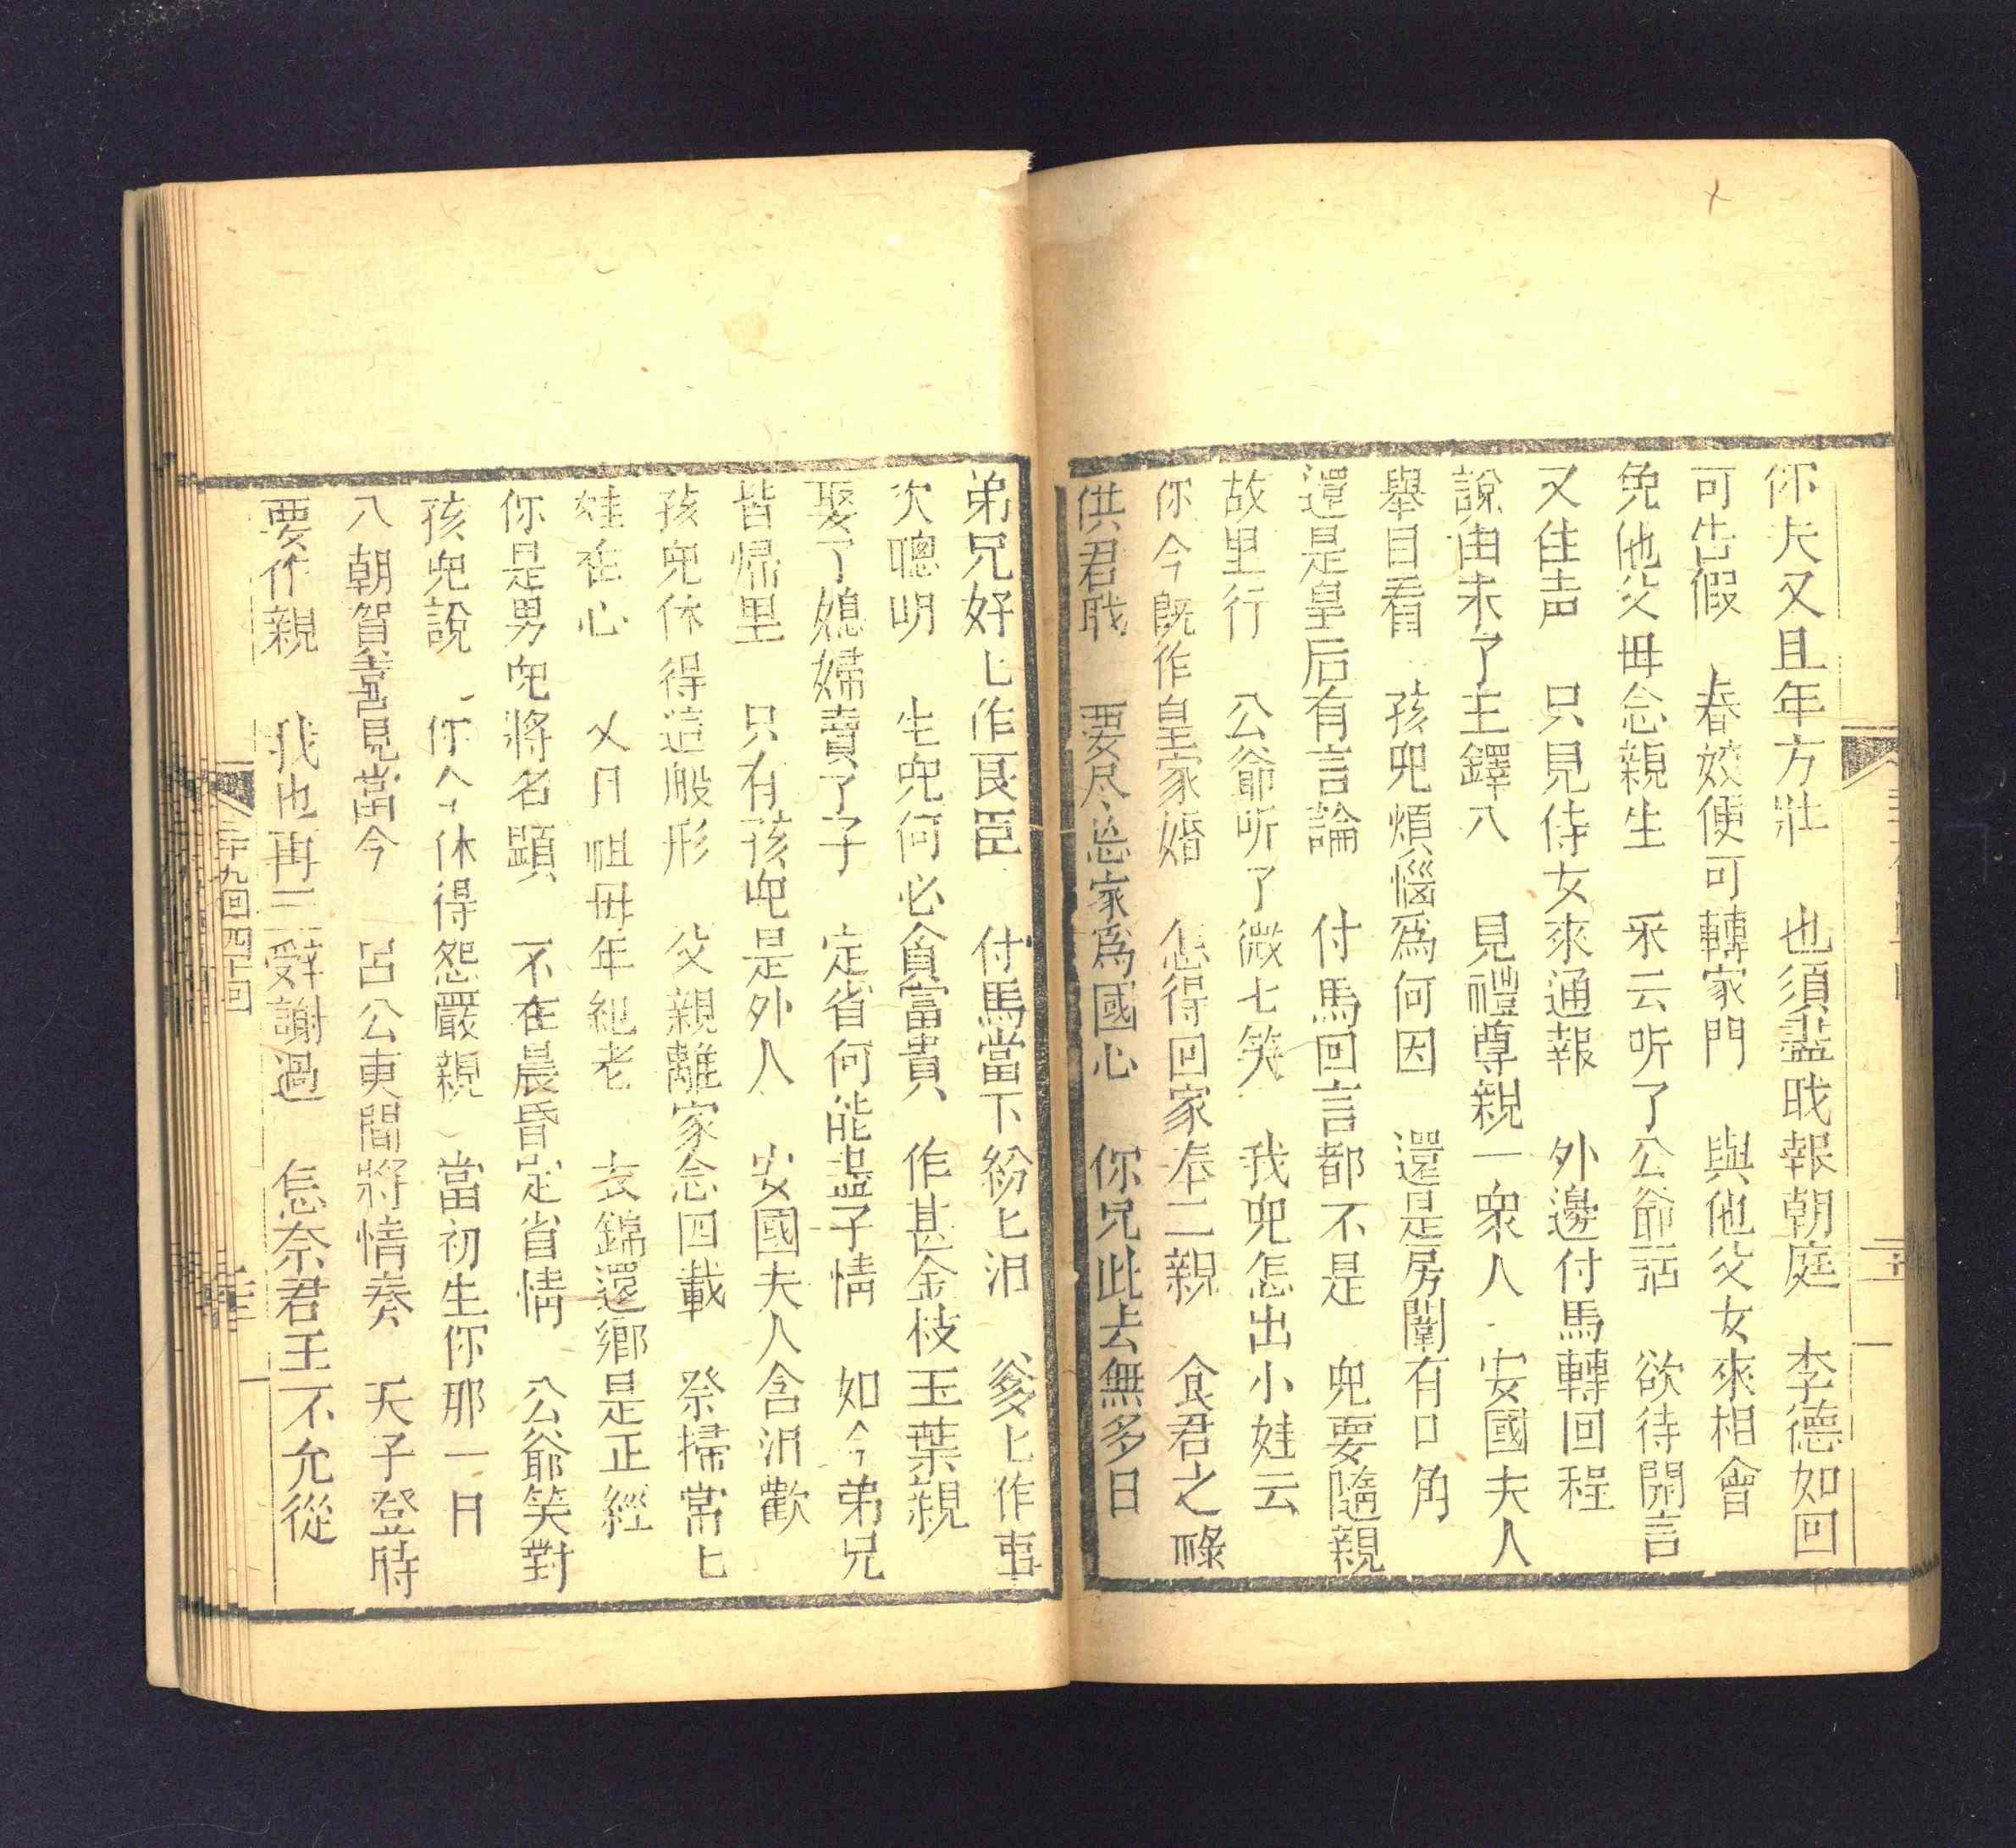 你夫又且年方壯　也須盡戝報朝庭　李德如回
可告假　春姣便可轉家門　與他父女來相會
免他父母念親生　采云听了公爺話　欲待開言
又住声　只見侍女來通報　外邊付馬轉回程
說由未了主鐸八　見禮尊親一衆人　安國夫人
舉目看　孩兒煩惱爲何因　還是房闈有口角
還是皇后有言論　付馬回言都不是　兒要隨親
故里行　公爺听了微七笑　我兒怎出小娃云
你今既作皇家婚　怎得回家奉二親　食君之祿
供君戝　要尽忠家爲國心　你兄此去無多日
弟兄好匕作良臣　付馬當下紛匕泪　爹匕作事
欠聰明　生兒何必貪富貴　作甚金枝玉葉親
娶了媳婦賣了子　定省何能盡子情　如今弟兄
皆歸里　只有孩兒是外人　安國夫人含泪歡
孩兒休得這般形　父親離家念四載　祭掃常匕
娃在心　乂月祖毋年紀老　衣錦還鄉是正經
你是男兒將名顕　不在晨昏定省情　公爺笑對
孩兒說　你今休得怨嚴親　當初生你那一日
八朝賀喜見當今　呂公東閣將情奏　天子登時
要作親　我也再三辞謝過　怎奈君王不允從
三十九回四十回